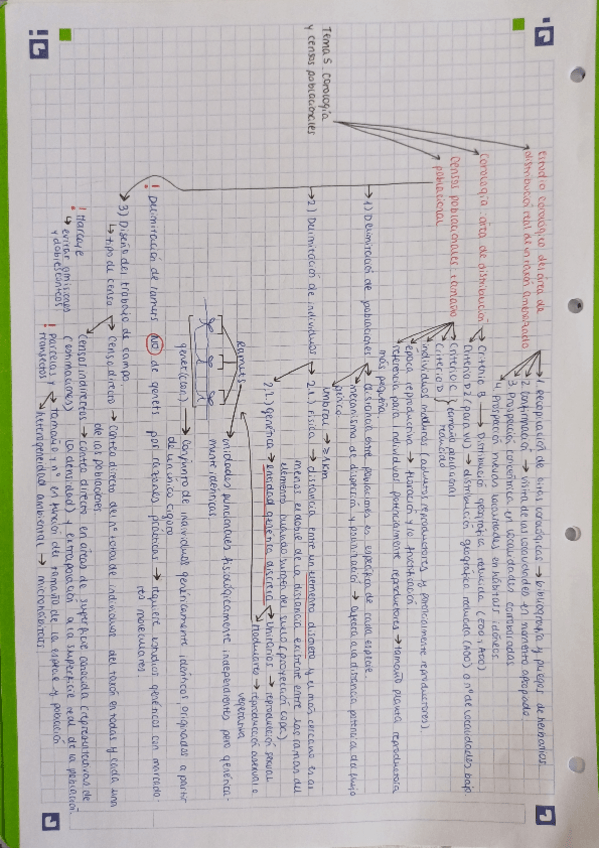 Tema 5. Corología
y censos poblacionales
Estudio corológico del área de
distribución real de un taxón amenazado
1. Recopilación de citas corológicas → bibliografía y pliegos de herbarios.
2. Confirmación → visita de las localidades en momento apropiado
3. Prospección concéntrica en localidades corroboradas
4. Prospección nuevas localidades en hábitats idóneos.
Corología: área de distribución
Criterio B → Distribución geográfica reducida (EOO, AOO)
Criterio D2 (para VU) → distribución geográfica reducida (AOO) o nº de localidades bajo.
Censos poblacionales: tamaño
poblacional
Criterio C
Criterio D
tamaño poblacional
reducido
individuos maduros (adultos reproductores y potencialmente reproductores)
época reproductiva → floración y/o fructificación
referencia para individuos potencialmente reproductores → tamaño planta reproductora
más pequeña.
→ 1) Delimitación de poblaciones
distancia entre poblaciones es específica de cada especie.
mecanismo de dispersión y polinización → afecta a la distancia potencial del flujo
génico.
umbral → ≥ 1 km
→ 2) Delimitación de individuos
2.1.) Física → distancia entre un elemento discreto y el más cercano es al
menos el doble de la distancia existente entre las ramas del
elemento cuando surgen del suelo (proyección copa)
2.2.) Genética → entidad genética discreta
Unitarios → reproducción sexual
Modulares → reproducción asexual o
vegetativa
Ramets
unidades funcionales fisiológicamente independientes pero genética-
mente idénticas
genet (clon) → Conjunto de individuos genéticamente idénticos, originados a partir
de un único cigoto
! Delimitación de ramets NO de genets por razones prácticas → requiere estudios genéticos con marcado-
res moleculares
3) Diseño del trabajo de campo.
↳ tipo de censo
Censo directo → Conteo directo del nº total de individuos del taxón en todas y cada una
de las poblaciones
Censos indirectos → Conteo directo en áreas de superficie conocida (representativas de
(estimaciones) la densidad) y extrapolación a la superficie real de la población
! Marcaje
↳ evitar omisiones
y dobles conteos
! Parcelas y
transectos
Tamaño y nº en función del tamaño de la especie y población
Heterogeneidad ambiental → microhábitats.